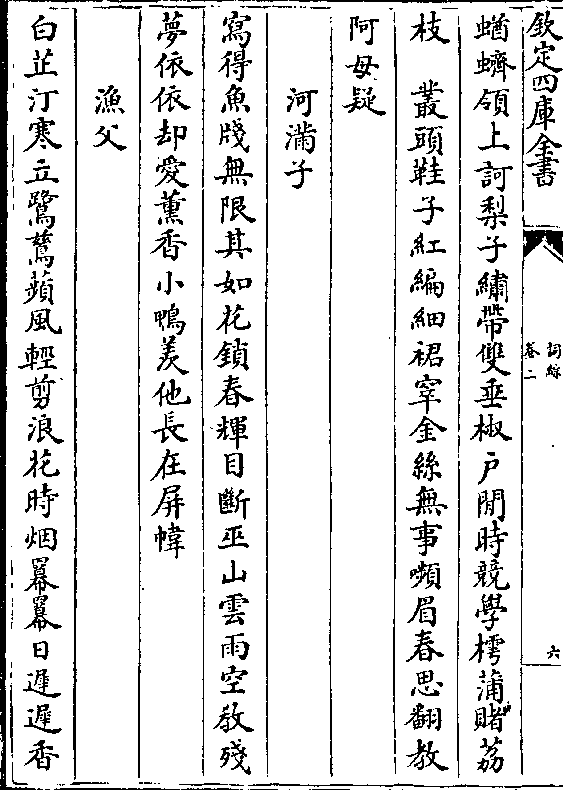 欽定四庫全書
詞綜
卷二
六
蝤蠐領上訶梨子繡帶雙垂椒户閒時競學樗蒲賭荔
枝　叢頭鞋子紅編細裙窣金絲無事嚬眉春思翻教
阿母疑
河滿子
寫得魚牋無限其如花鎖春輝目斷巫山雲雨空教殘
夢依依却愛薫香小鴨羡他長在屏幃
漁父
白芷汀寒立鷺鷥蘋風輕剪浪花時烟羃羃日遲遲香